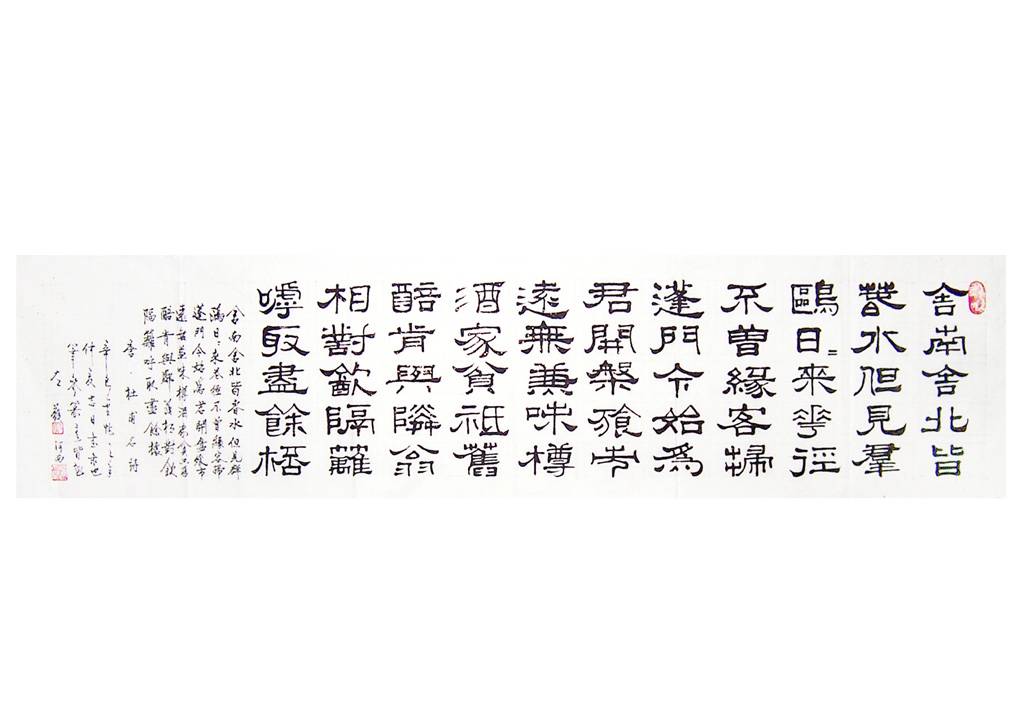 舍南舍北皆
春水但見羣
鷗日〻来花徑
不曾緣客掃
蓬門今始為
君開槃飱市
遠無兼味樽
酒家貧祗舊
醅肯與隣翁
相對飲隔籬
嘑取盡餘桮
舍南舍北皆春水但見群
鷗日〻来花徑不曾緣客掃
蓬門今始為君開盤飱市
遠無兼味樽酒家貧祗舊
醅肯與鄰翁相對飲
隔籬呼取盡餘杯
杜甫名詩